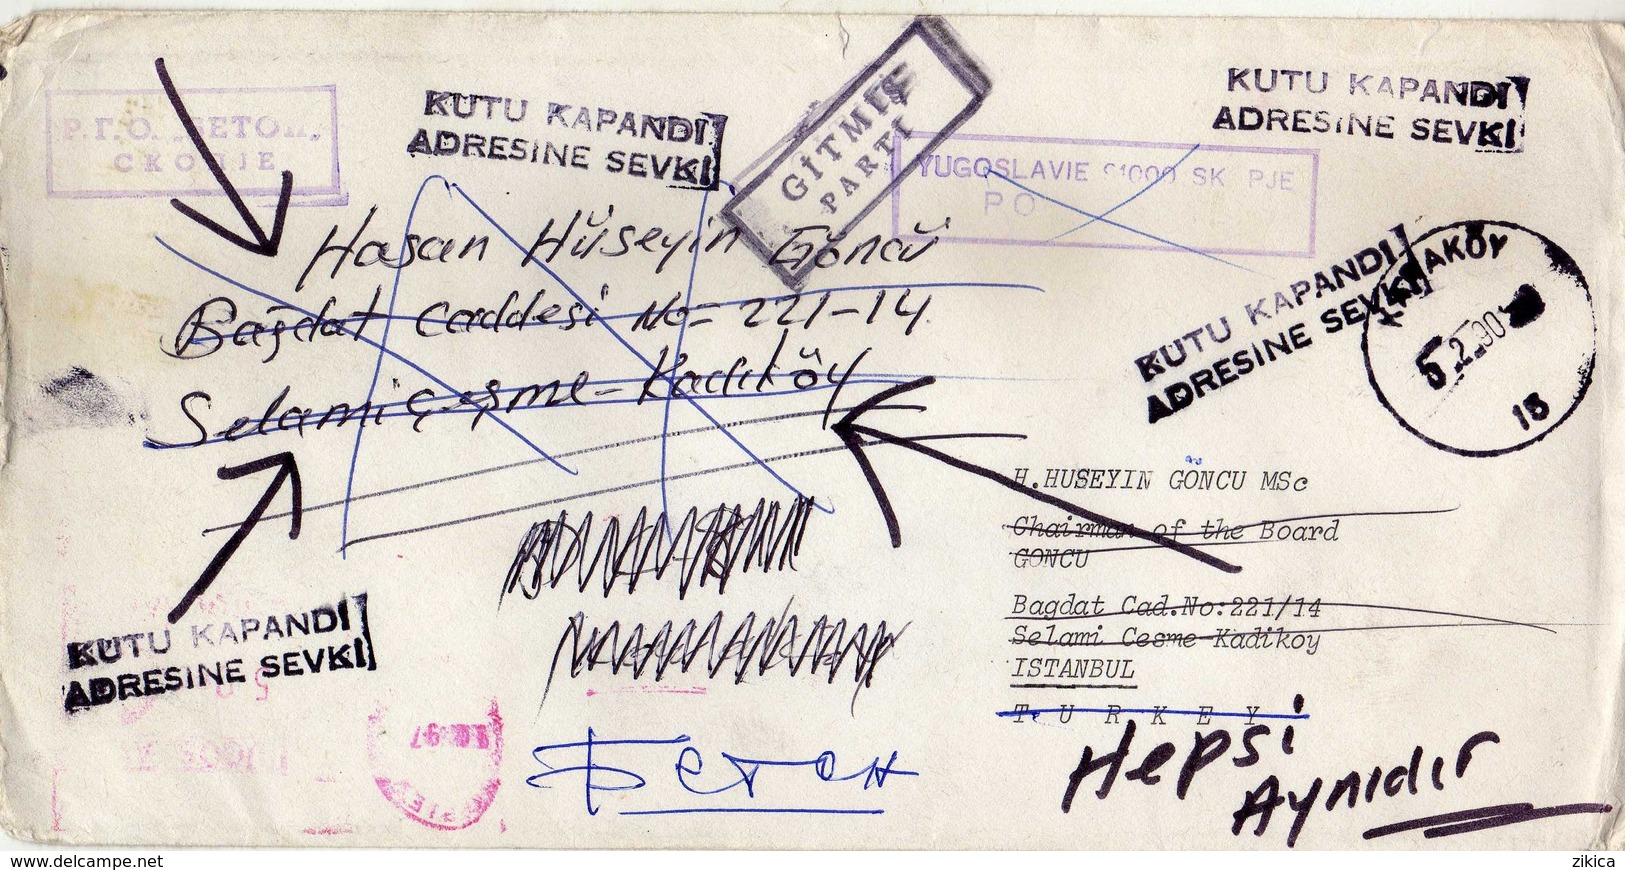 KUTU KAPANDI
ADRESINE SEVKI
GİTMİŞ
PARTİ
KUTU KAPANDI
ADRESINE SEVKI
Р.Г.О.
YUGOSLAVIE 91000 SK PJE
PO
Hasan Hüseyin Göncü
Bağdat Caddesi No= 221-14
Selami Çeşme-Kadıköy
KUTU KAPANDI
ADRESINE SEVKI
AKÖY
5.2.90
H.HUSEYIN GÖNCU MSc
Chairman of the Board
GONCU
Bagdat Cad.No:221/14
Selami Cesme-Kadikoy
ISTANBUL
T U R K E Y
KUTU KAPANDI
ADRESINE SEVKI
Бетон
Hepsi
Aynıdır
www.delcampe.net
zikica